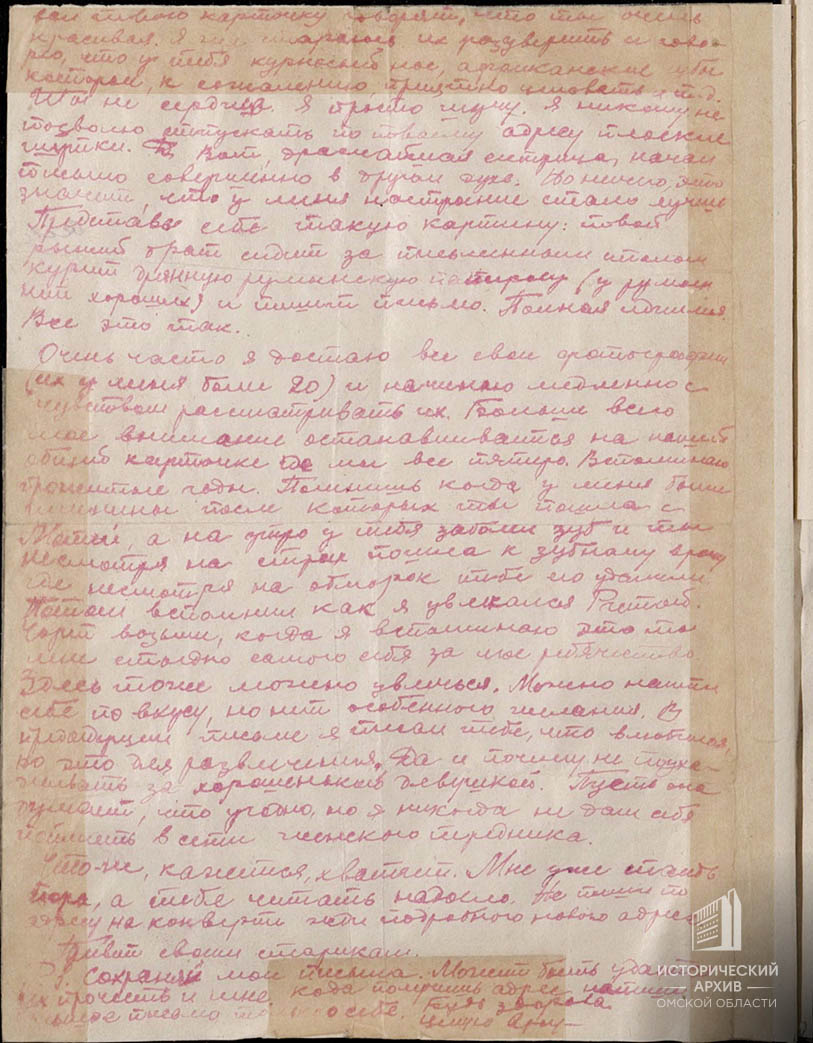 твою карточку говорят, что ты очень
красивая. Я же стараюсь их разуверить и гово-
рю, что у тебя курносый нос, африканские губы
которые, к сожалению, приятно целовать и т.д.
Ты не сердись. Я просто шучу. Я никому не
позволю отпускать по твоему адресу плоские
шутки. Вот, драгоценная сестрица, начал
письмо совершенно в другом духе. Но ничего, это
значит, что у меня настроение стало лучше
Представь себе такую картину: твой
рыжий брат сидит за письменным столом
курит дрянную румынскую папиросу (у румын
нет хороших) и пишет письмо. Полная идиллия.
Все это так.
Очень часто я достаю все свои фотографии
(их у меня было 20) и начинаю медленно с
чувством рассматривать их. Больше всего
мое внимание останавливается на нашей
общей карточке где мы все пятеро. Вспоминаю
прожитые годы. Помнишь когда у меня были
именины после которых ты пошла с
Мотей, а на утро у тебя заболел зуб и ты
несмотря на страх пошла к зубному врачу
где несмотря на обморок тебе его удалили
Потом вспомни как я увлекался Ритой.
Чорт возьми, когда я вспоминаю это то
мне стыдно самого себя за мое ребячество
Здесь тоже можно увлечься. Можно найти
себе по вкусу, но нет особенного желания. В
предыдущем письме я писал тебе, что влюбился,
но это для развлечения. Да и почему не поуха-
живать за хорошенькой девушкой. Пусть она
думает, что угодно, но я никогда не дам себя
поймать в сети женского передника.
Что-же, кажется, хватит. Мне уже спать
пора, а тебе читать надоело. Не пиши по
адресу на конверте жди подробного нового адреса
Привет своим старикам.
P.S. Сохраняй мои письма. Может быть удастся
их прочесть и мне. Когда получишь адрес напиши
письмо о себе. Будь здорова
Целую
ИСТОРИЧЕСКИЙ
АРХИВ
ОМСКОЙ ОБЛАСТИ